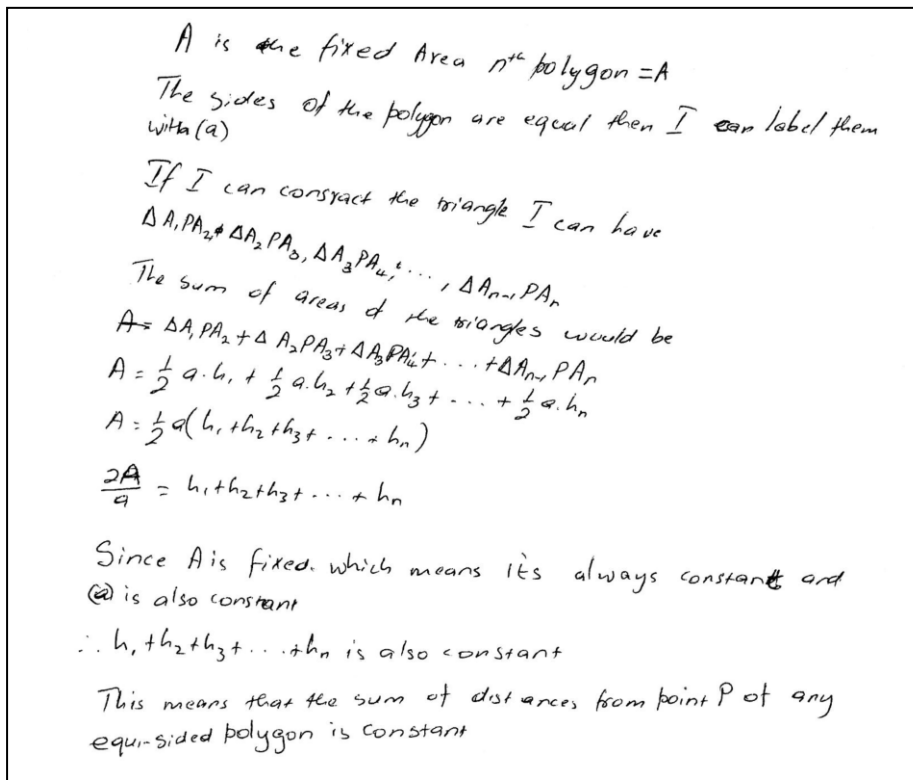 A is the fixed Area nth polygon = A
The sides of the polygon are equal then I can label them
with (a)
If I can consract the triangle I can have
ΔA₁PA₂, ΔA₂PA₃, ΔA₃PA₄, ..., ΔAₙ₋₁PAₙ
The sum of areas of the triangles would be
A = ΔA₁PA₂ + ΔA₂PA₃ + ΔA₃PA₄ + ... + ΔAₙ₋₁PAₙ
A = ½ a.h₁ + ½ a.h₂ + ½ a.h₃ + ... + ½ a.hₙ
A = ½ a(h₁ + h₂ + h₃ + ... + hₙ)
2A/a = h₁ + h₂ + h₃ + ... + hₙ
Since A is fixed. which means it's always constant and
(a) is also constant
∴ h₁ + h₂ + h₃ + ... + hₙ is also constant
This means that the sum of distances from point P of any
equi-sided polygon is constant